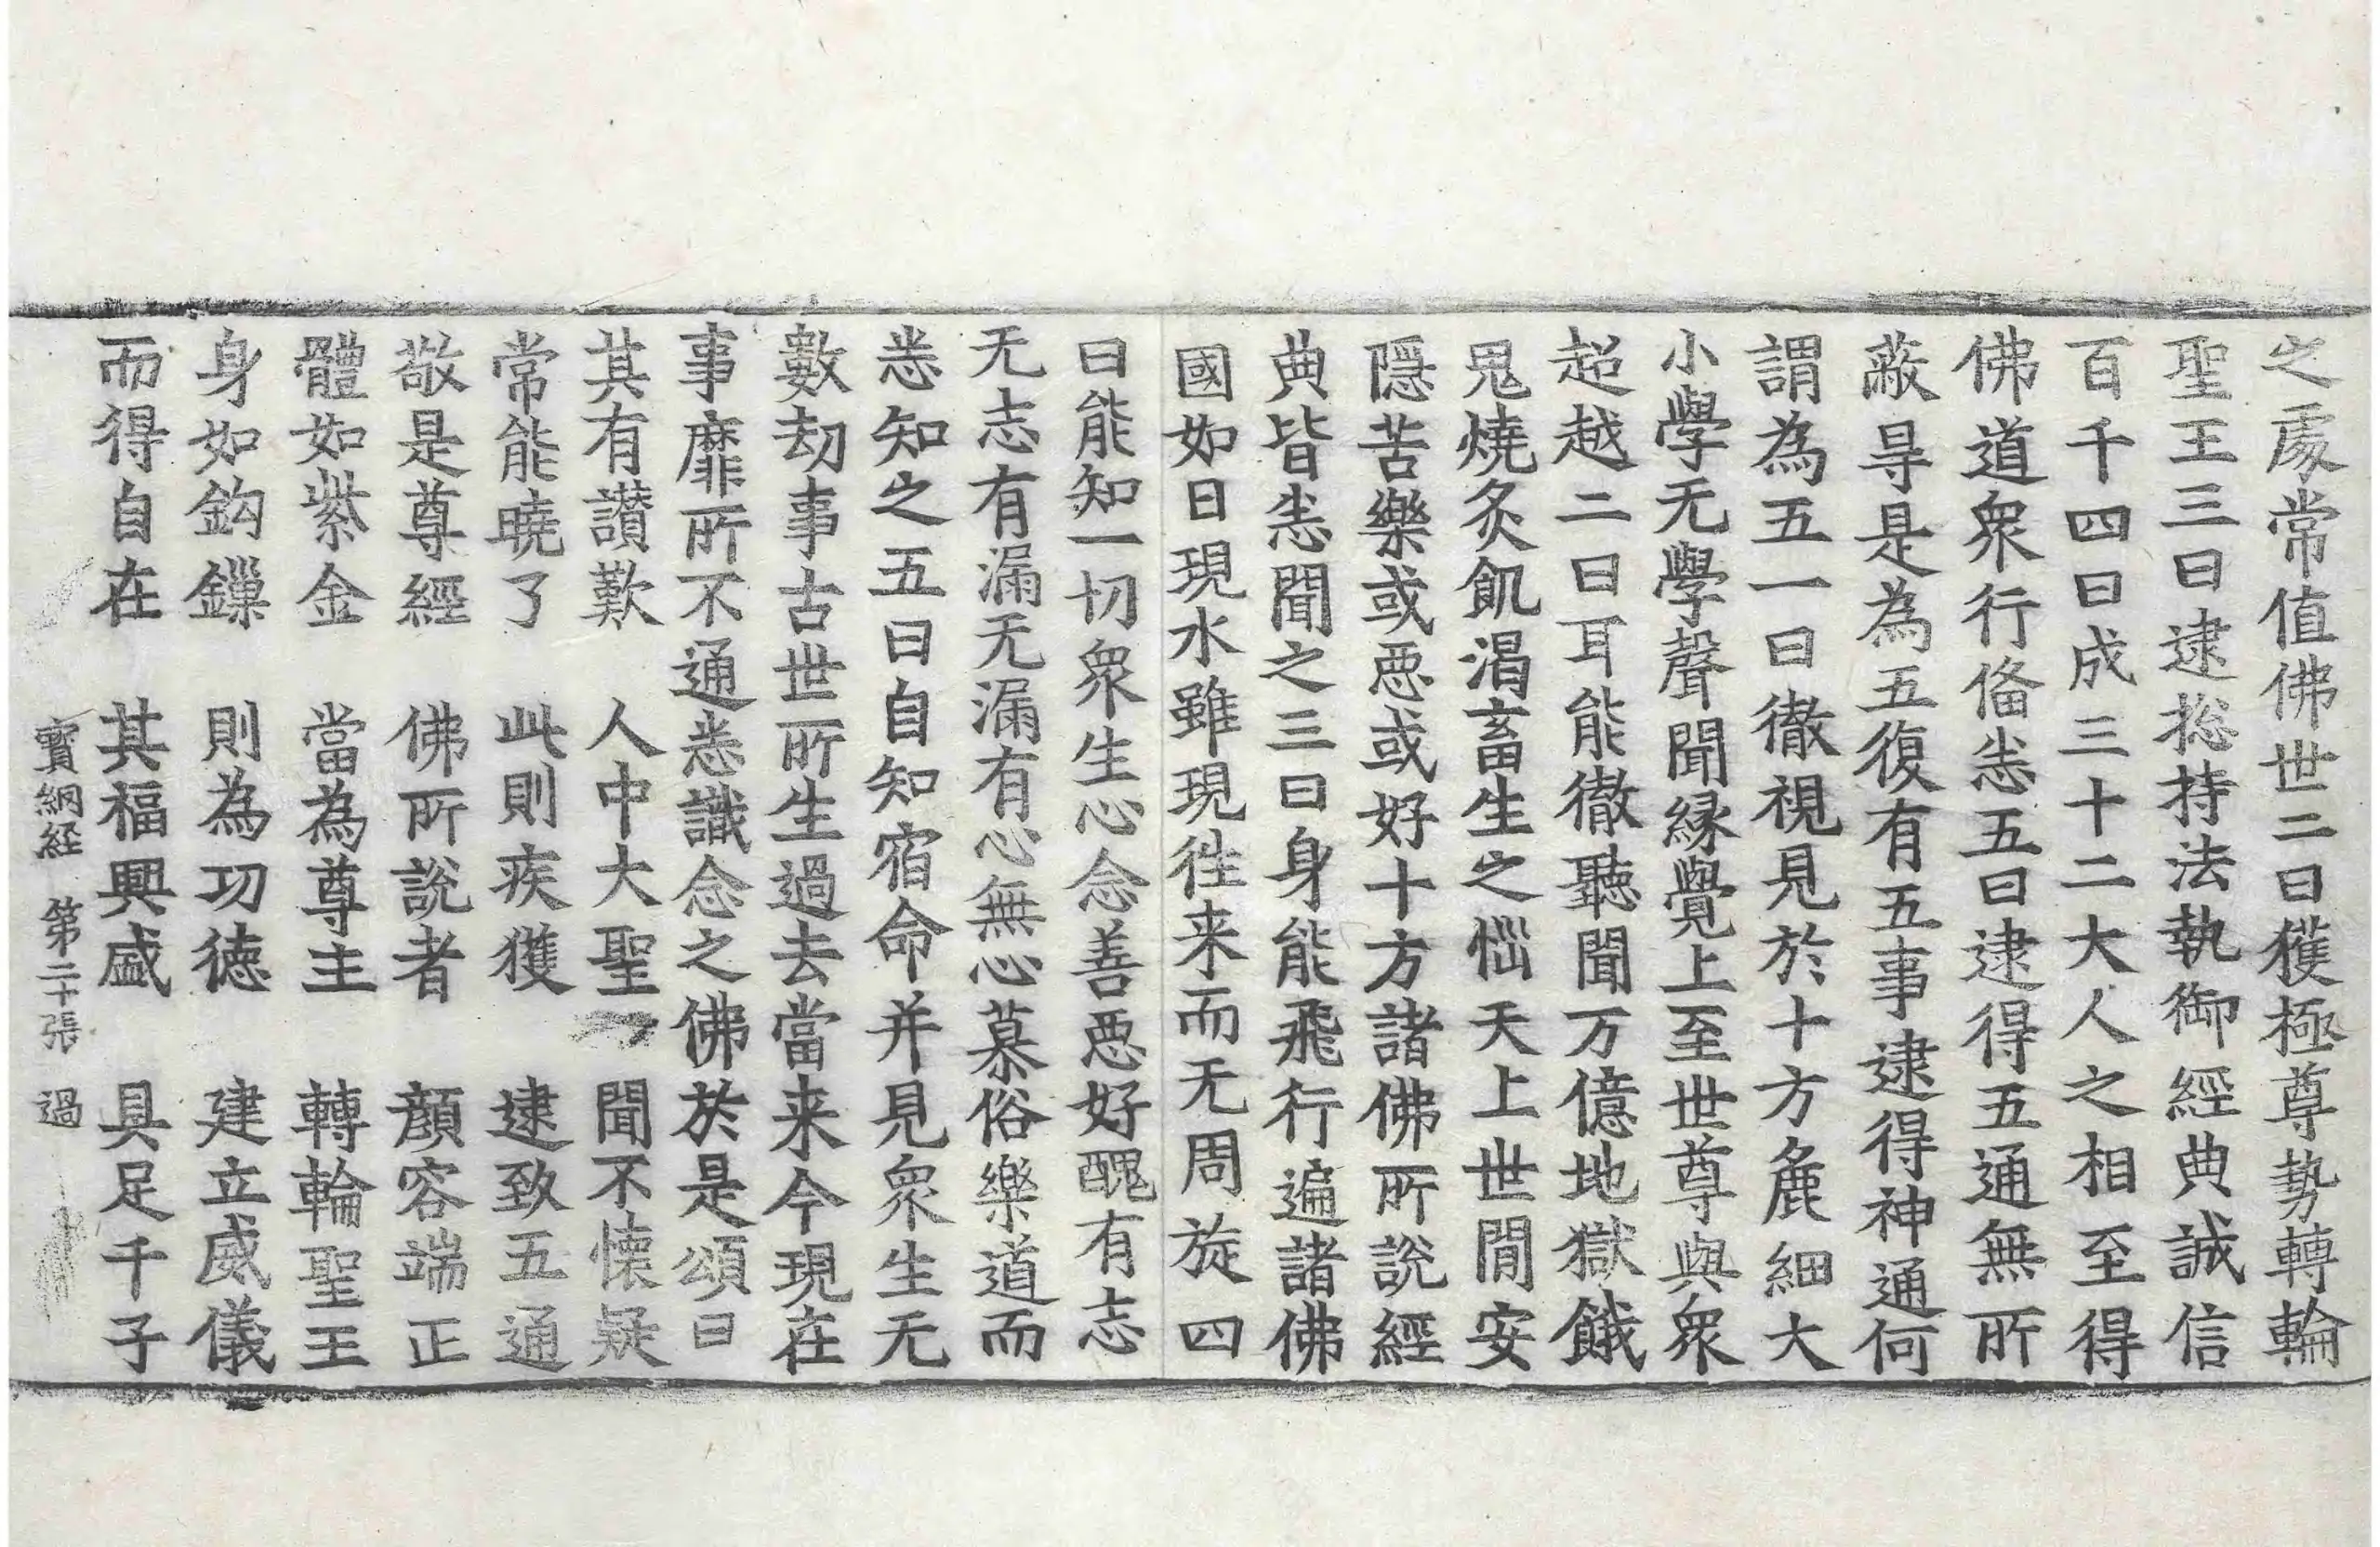 之處常值佛世二曰獲極尊勢轉輪
聖王三曰逮揔持法執御經典誠信
百千四曰成三十二大人之相至得
佛道衆行俻恙五曰逮得五通無所
蔽㝵是為五復有五事逮得神通何
謂為五一曰徹視見於十方麁細大
小學无學聲聞緣覺上至世尊與衆
超越二曰耳能徹聽聞万億地獄餓
鬼燒炙飢渴畜生之惱天上世閒安
隱苦樂或惡或好十方諸佛所說經
典皆悉聞之三曰身能飛行遍諸佛
國如日現水雖現徃来而无周旋四
曰能知一切衆生心念善惡好醜有志
无志有漏无漏有心無心慕俗樂道而
悉知之五曰自知宿命并見衆生无
數劫事古世所生過去當来今現在
事靡所不通悉識念之佛於是頌曰
其有讃歎　人中大聖　聞不懷疑
常能曉了　此則疾獲　逮致五通
敬是尊經　佛所說者　顏容端正
體如紫金　當為尊主　轉輪聖王
身如鈎鏁　則為功德　建立威儀
而得自在　其福興盛　具足千子
寶網経　第二十張　過